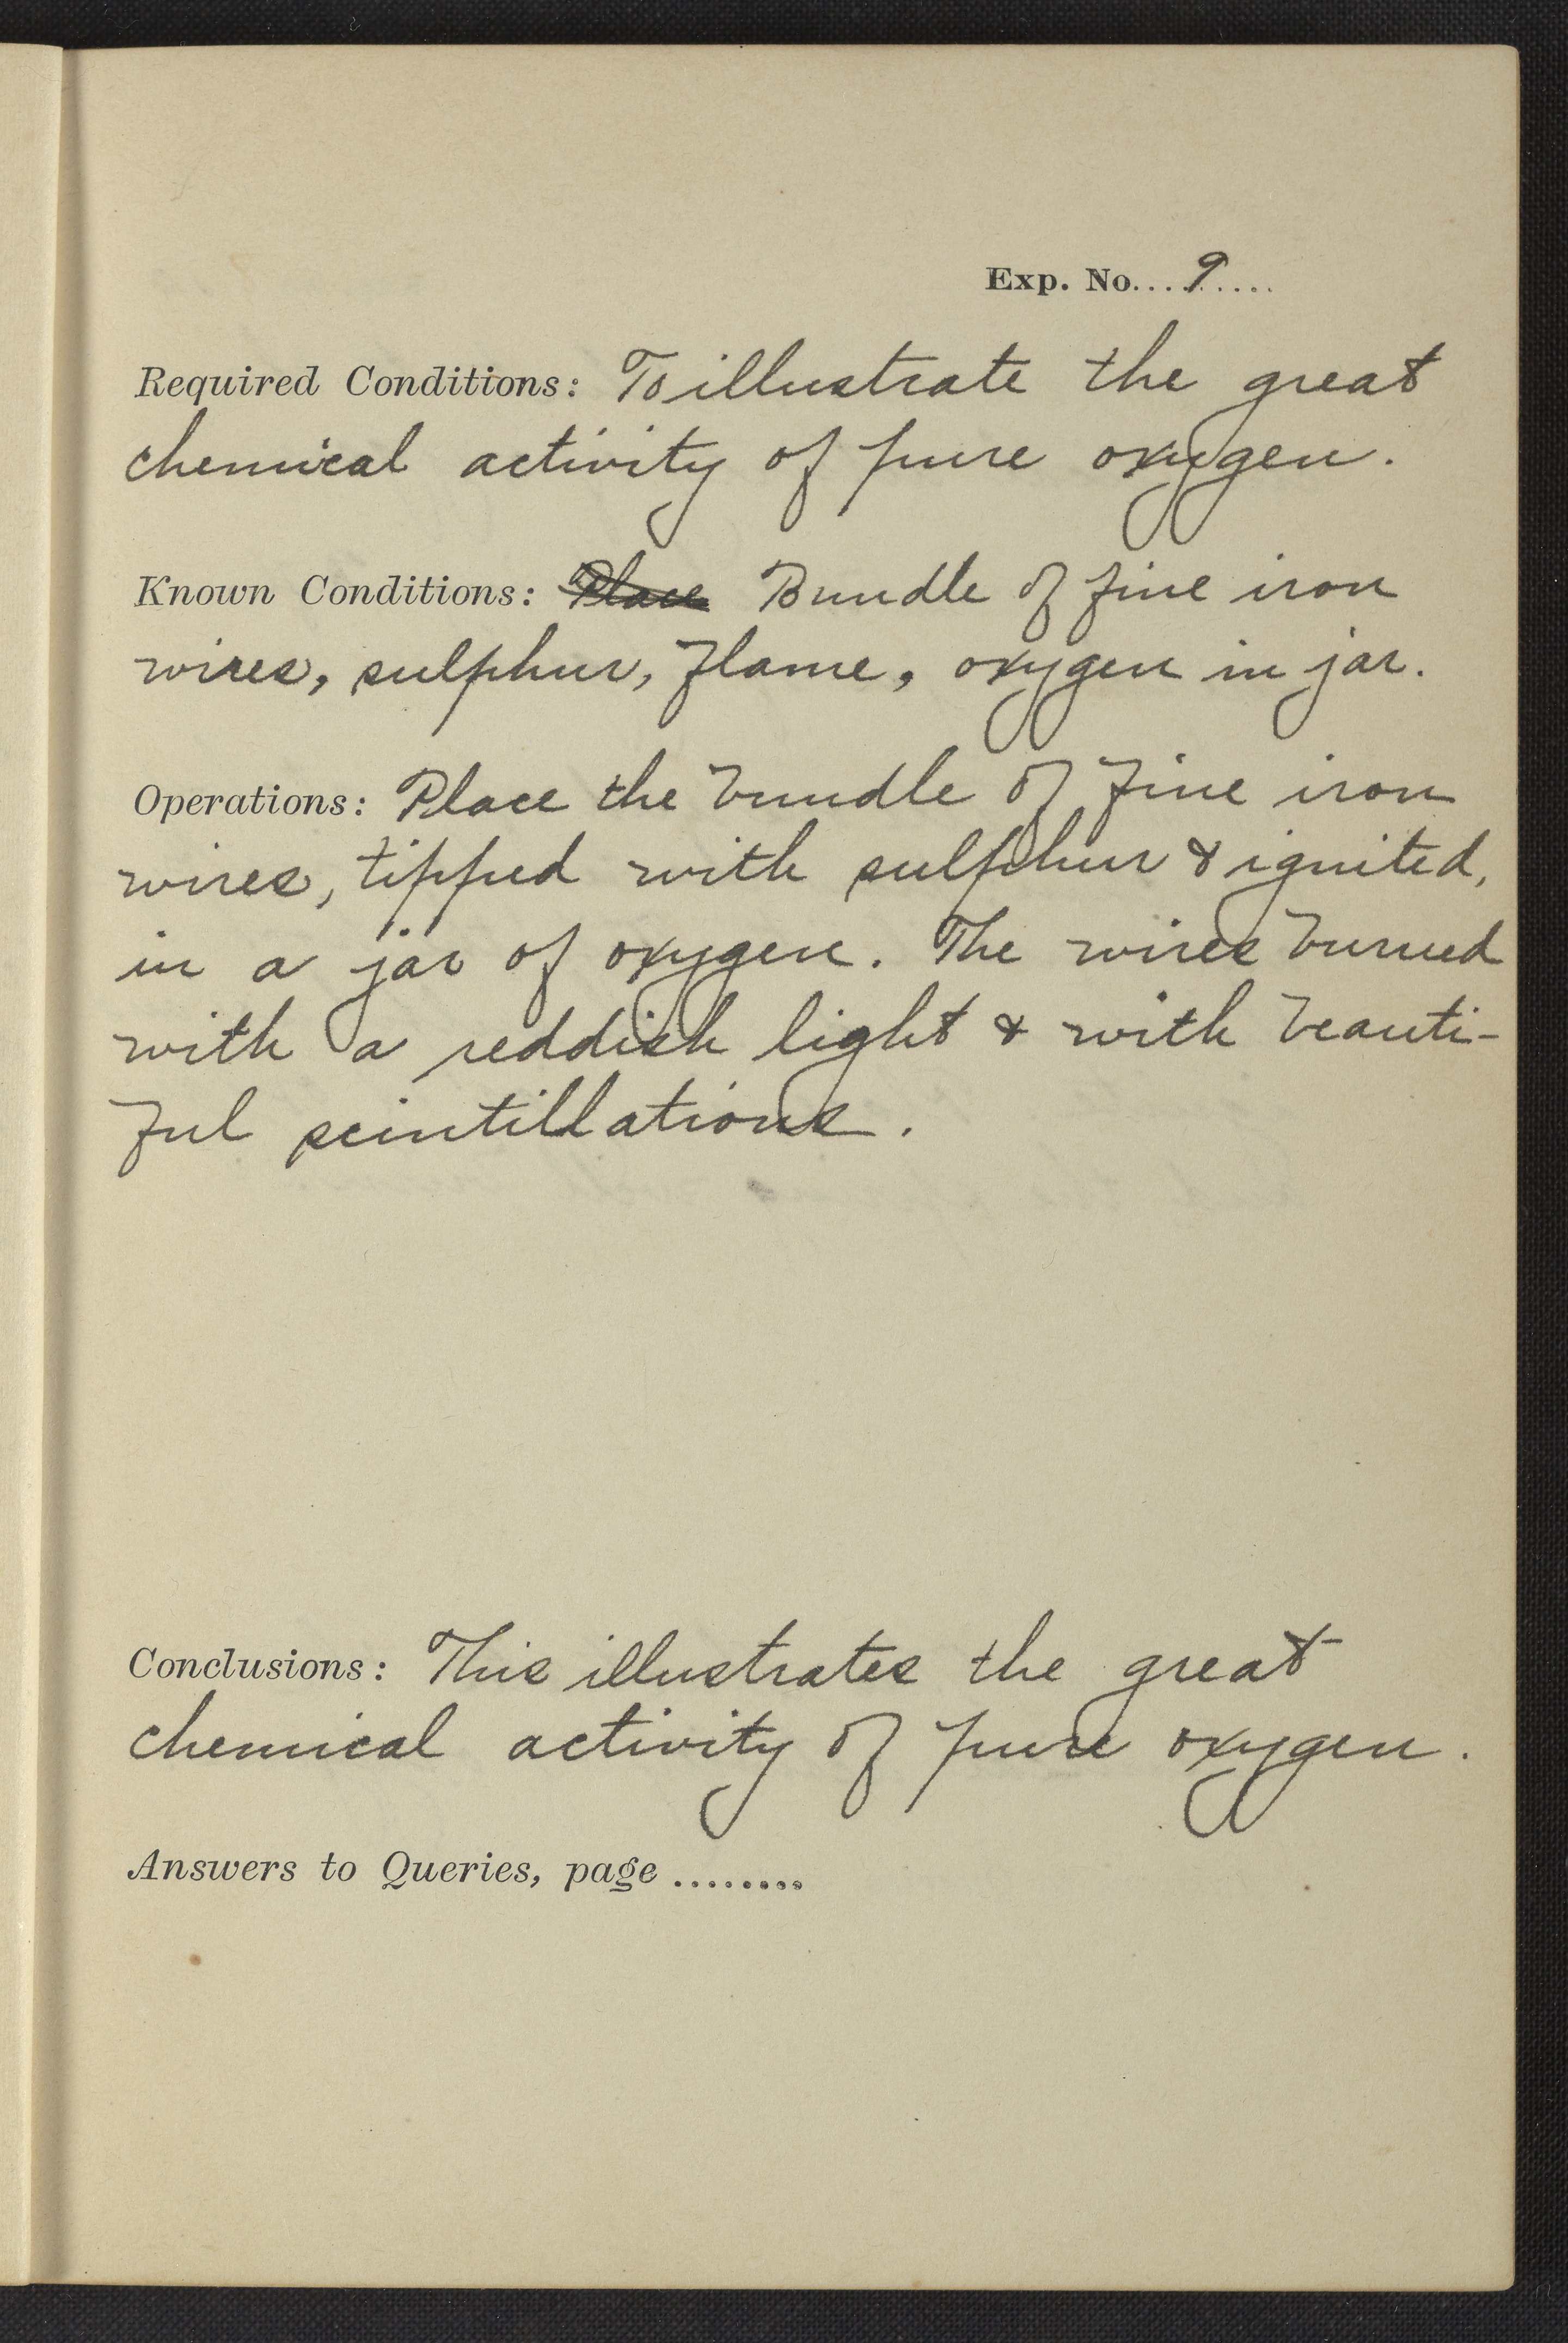 Exp. No....9.....
Required Conditions: To illustrate the great
chemical activity of pure oxygen.
Known Conditions: Place Bundle of fine iron
wires, sulphur, flame, oxygen in jar.
Operations: Place the bundle of fine iron
wires, tipped with sulphur & ignited,
in a jar of oxygen. The wires burned
with a reddish light & with beauti-
ful scintillations.
Conclusions: This illustrates the great
chemical activity of pure oxygen.
Answers to Queries, page .........